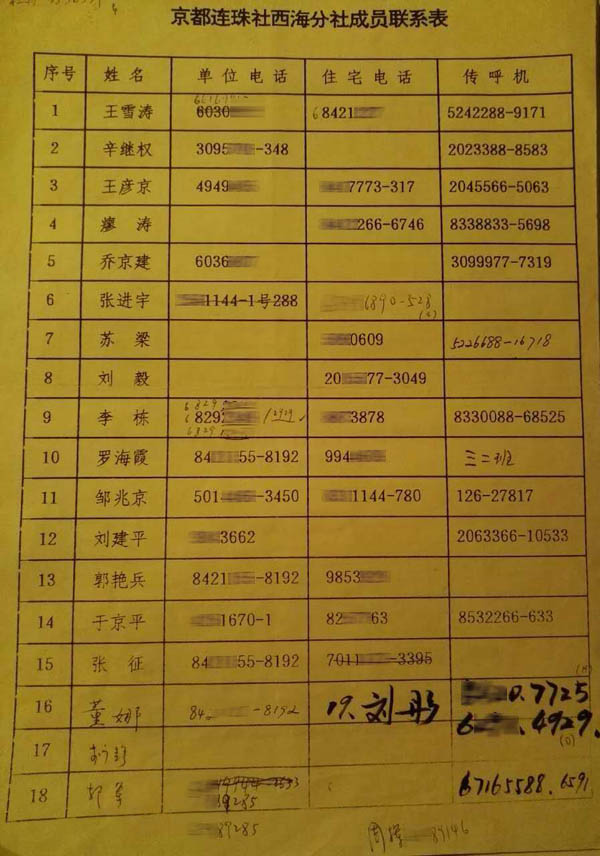 京都连珠社西海分社成员联系表
序号 姓名 单位电话 住宅电话 传呼机
1 王雪涛 6030 68421 5242288-9171
2 辛继权 3095 -348 2023388-8583
3 王彦京 4949 7773-317 2045566-5063
4 瘳涛 266-6746 8338833-5698
5 乔京建 6036 3099977-7319
6 张进宇 1144-1号288 6890-528
7 苏梁 0609 5226688-16718
8 刘毅 20 77-3049
6829
9 李栋 68292 3878 8330088-68525
6829
10 罗海霞 84 55-8192 994 三二班
11 邹兆京 501 -3450 1144-780 126-27817
12 刘建平 3662 2063366-10533
13 郭艳兵 8421 -8192 9853
14 于京平 1671670-1 82 63 8532266-633
15 张征 84 55-8192 7011 -3395
(H)
16 董娜 84 -8192 19.刘彤 0.7725
6 .4929.
(O)
17
18 67165588.6591
19285
89285 周 89146